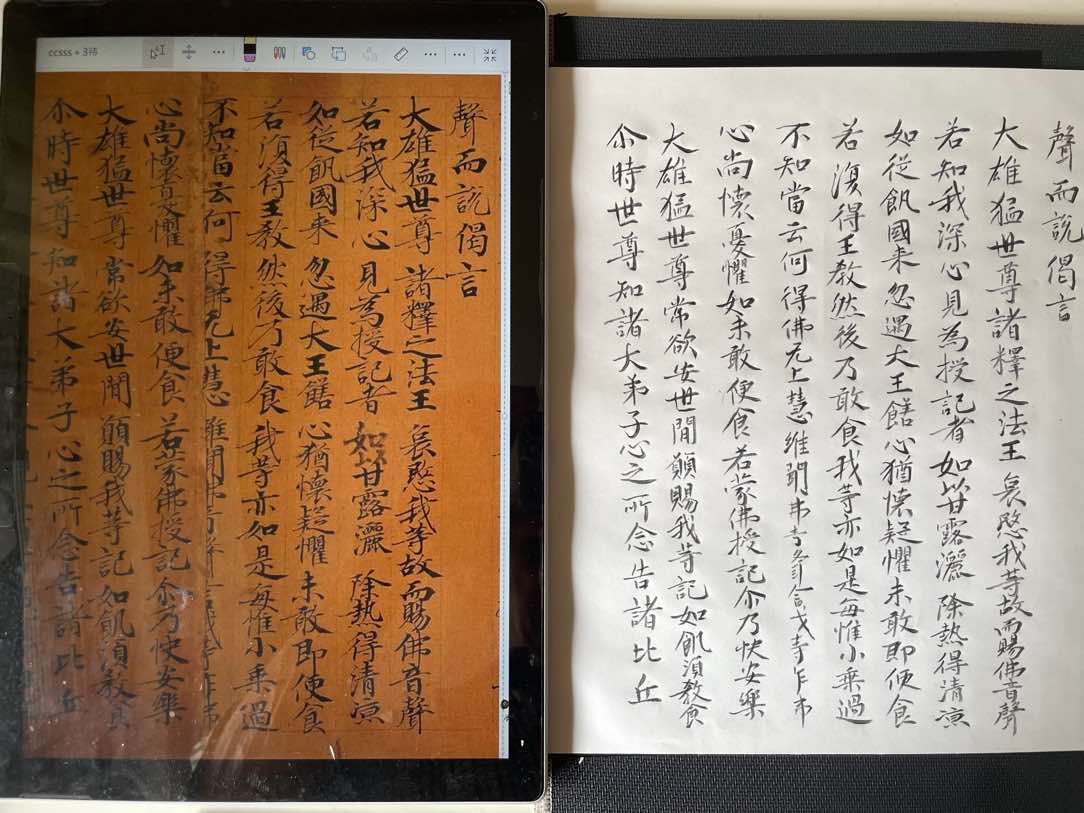 ccsss + 3待
聲而說偈言
大雄猛世尊 諸釋之法王 哀愍我等故而賜佛音聲
若知我深心 見為授記者 如以甘露灑 除熱得清涼
如從飢國来 忽遇大王饍 心猶懷疑懼 未敢即便食
若復得王教 然後乃敢食 我等亦如是 每惟小乘過
不知當云何 得佛无上慧
心尚懷憂懼 如未敢便食 若蒙佛授記 尒乃快安樂
大雄猛世尊 常欲安世間 願賜我等記 如飢須教食
尒時世尊知諸大弟子心之所念告諸比丘
聲而說偈言
大雄猛世尊諸釋之法王哀愍我等故而賜佛音聲
若知我深心見為授記者如以甘露灑除熱得清涼
如從飢國来忽遇大王饍心猶懷疑懼未敢即便食
若復得王教然後乃敢食我等亦如是每惟小乘過
不知當云何得佛无上慧
心尚懷憂懼如未敢便食若蒙佛授記尒乃快安樂
大雄猛世尊常欲安世間願賜我等記如飢須教食
尒時世尊知諸大弟子心之所念告諸比丘